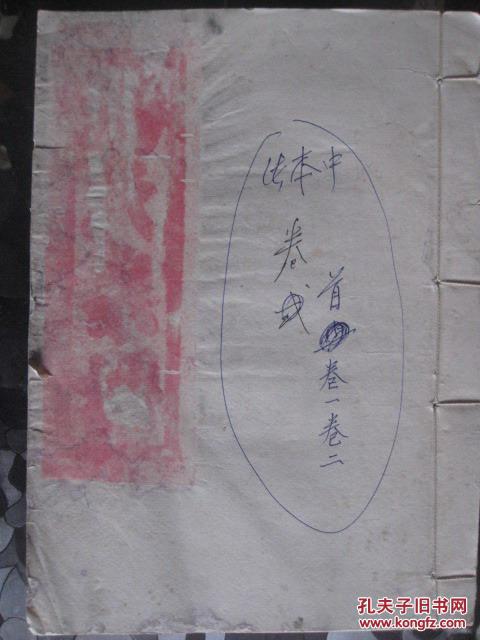 本中
首 卷一卷二
卷
孔夫子旧书网
www.kongfz.com